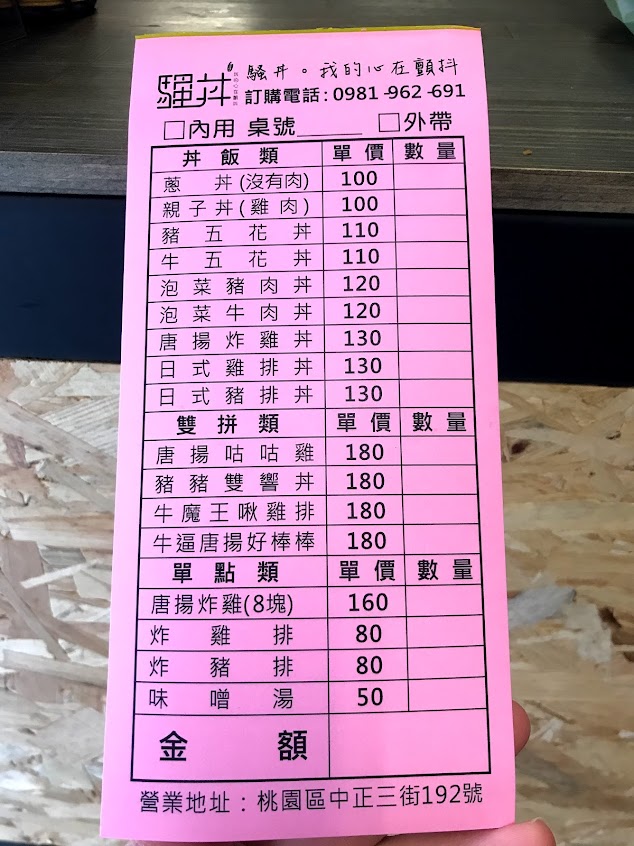 騷丼 騷丼。我的心在顫抖
我的心在顫抖
訂購電話:0981-962-691
□內用 桌號_____ □外帶
丼飯類 單價 數量
蔥丼(沒有肉) 100
親子丼(雞肉) 100
豬五花丼 110
牛五花丼 110
泡菜豬肉丼 120
泡菜牛肉丼 120
唐揚炸雞丼 130
日式雞排丼 130
日式豬排丼 130
雙拼類 單價 數量
唐揚咕咕雞 180
豬豬雙響丼 180
牛魔王啾雞排 180
牛逼唐揚好棒棒 180
單點類 單價 數量
唐揚炸雞(8塊) 160
炸雞排 80
炸豬排 80
味噌湯 50
金額
營業地址:桃園區中正三街192號